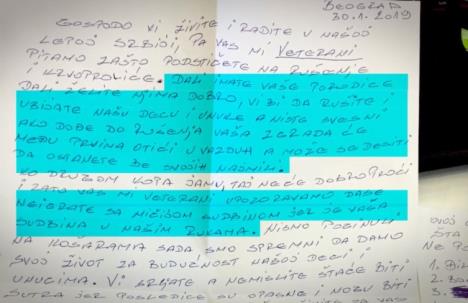 BEOGRAD
30.1.2019
GOSPODO VI ŽIVITE I RADITE U NAŠOJ
LEPOJ SRBIJI, PA VAS MI VETERANI
PITAMO ZAŠTO PODSTIČETE NA RUŠENJE
I KRVOPROLIĆE. DALI IMATE VAŠE PORODICE
DALI ŽELITE NJIMA DOBRO, VI BI DA RUŠITE I
UBIJATE NAŠU DECU I UNUKE A NISTE SVESNI
AKO DOĐE DO RUŠENJA VAŠA ZGRADA ĆE
MEĐU PRVIMA OTIĆI U VAZDUH A MOŽE SE DESITI
DA OSTANETE BEZ SVOJIH
KO DRUGOM KOPA JAMU, TAJ NEĆE DOBRO PROĆI
I ZATO VAS MI VETERANI UPOZORAVAMO DA SE
NEIGRATE SA NIČIJOM SUDBINOM JER JE VAŠA
SUDBINA U NAŠIM RUKAMA. NISMO POGINULI
NA KOŠARAMA SADA SMO SPREMNI DA DAMO
SVOJ ŽIVOT ZA BUDUĆNOST NAŠOJ DECI I
UNUCIMA. VI I NEMISLITE ŠTA ĆE BITI
SUTRA JER POSLEDICE SU OPASNE I MOGU BITI
ŠTA
NE PO
1.
2.
3.